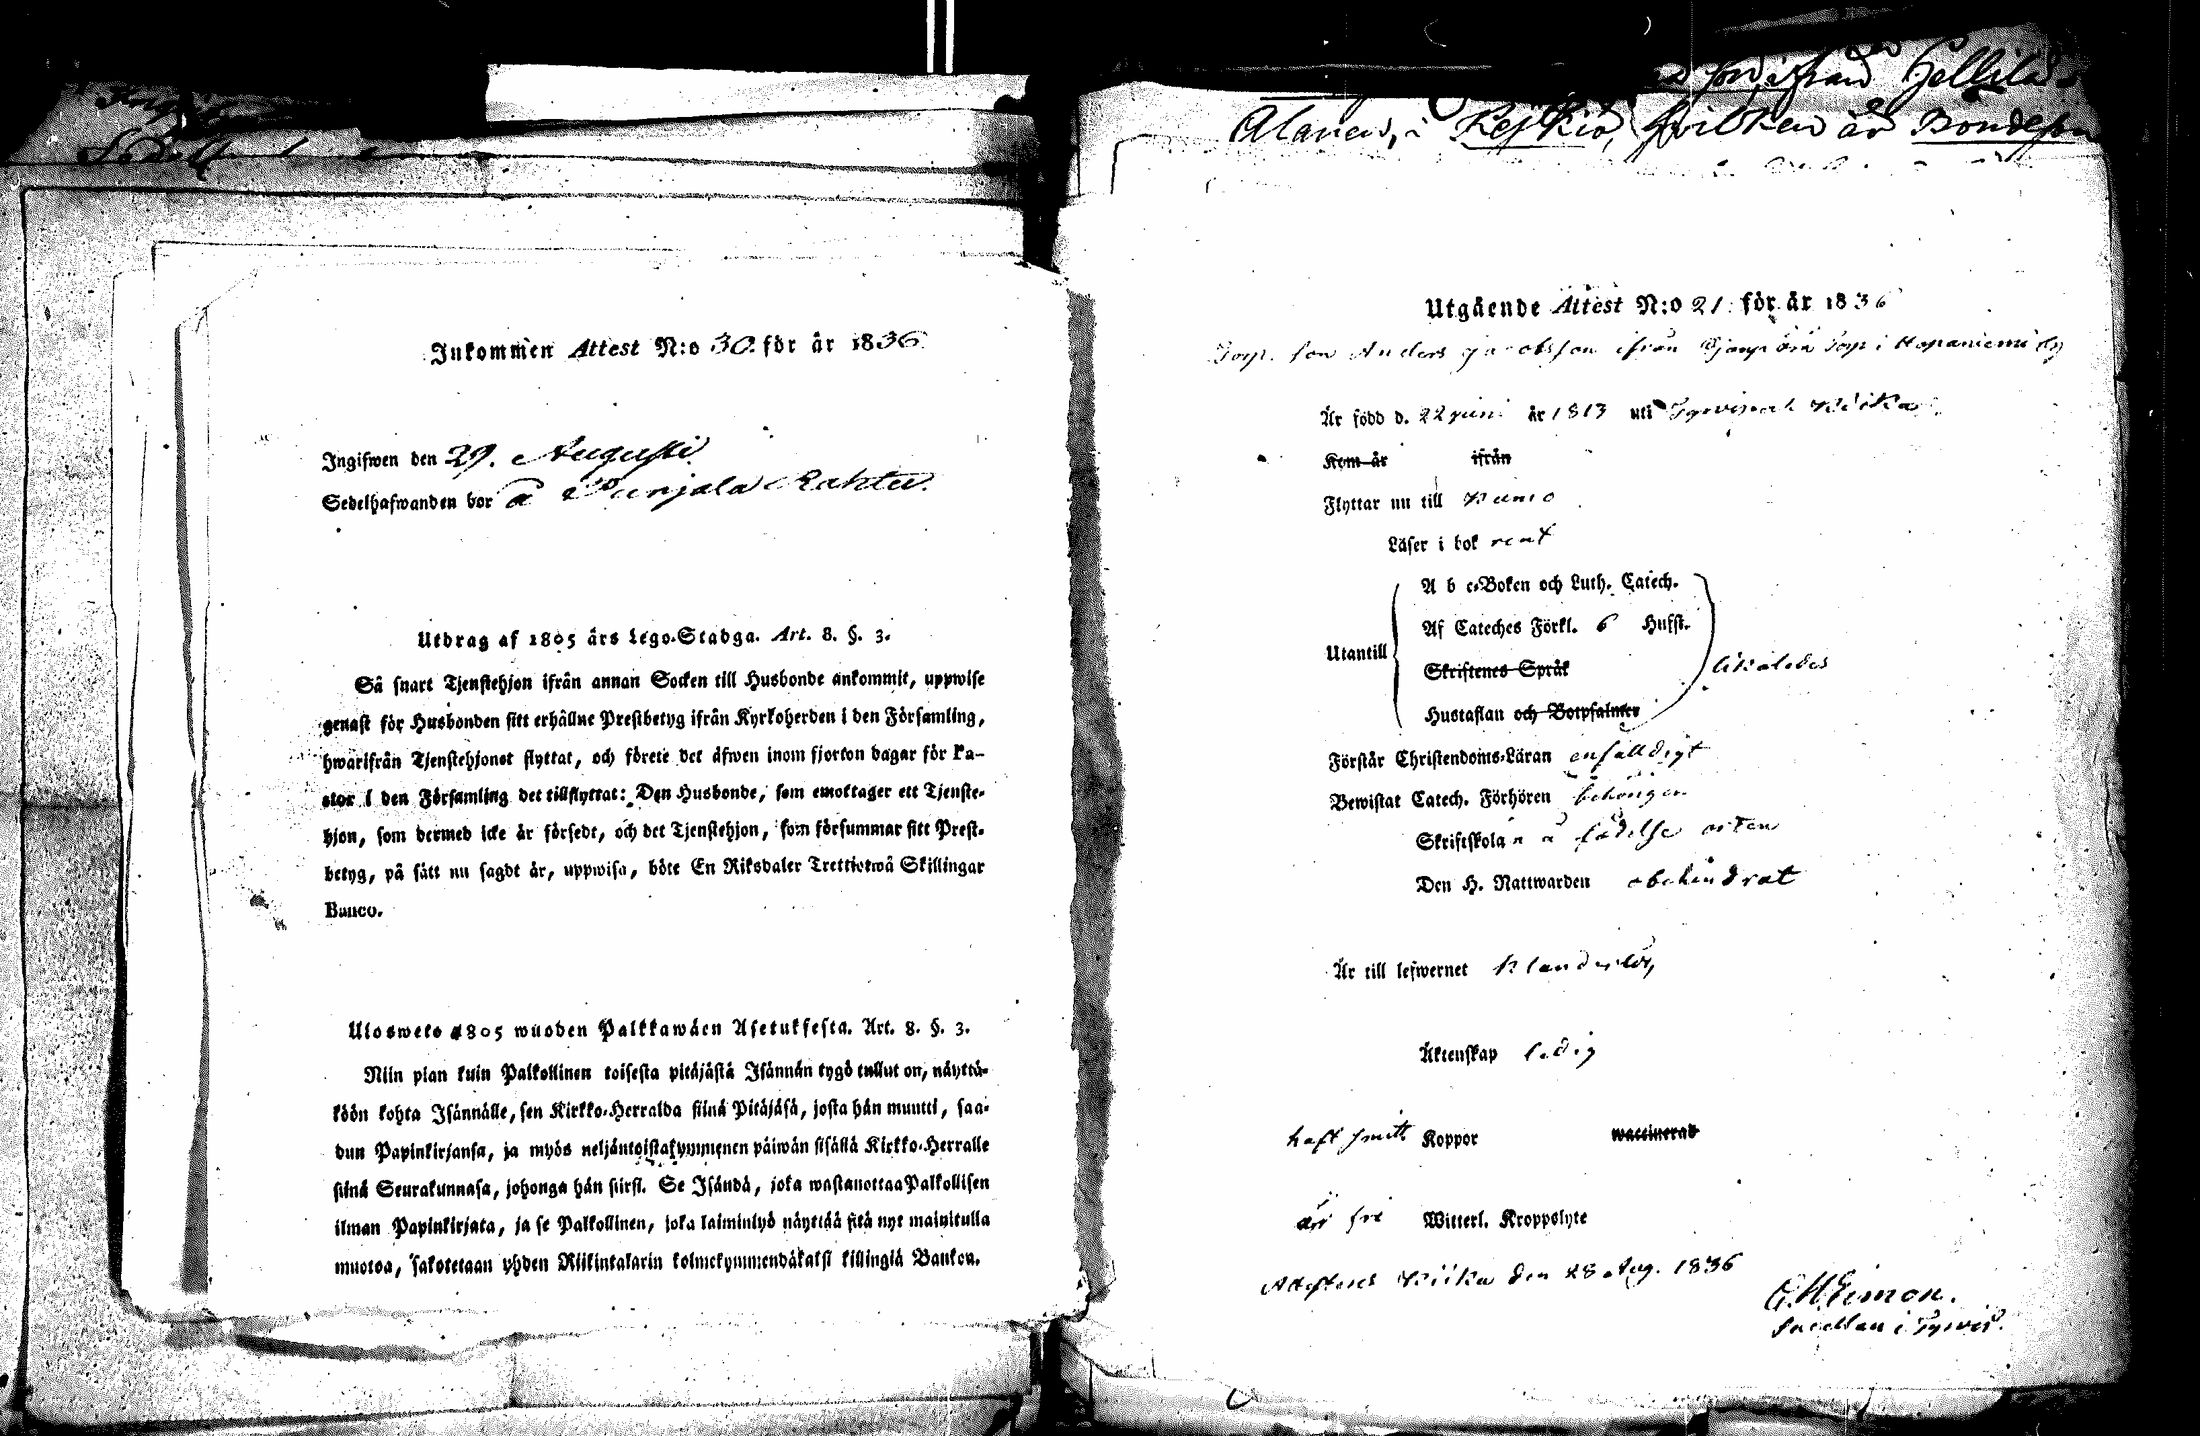 Inkommen Attest N:o 30. för år 1836.
Ingifwen den 29. Augusti
Sedelhafwanden bor å Punjala Rahtu.
Utdrag af 1805 års Lego-Stadga. Art. 8. §. 3.
Så snart Tjenstehjon ifrån annan Socken till Husbonde ankommit, uppwise
genast för Husbonden sitt erhållne Prestbetyg ifrån Kyrkoherden i den Församling,
hwarifrån Tjenstehjonet flyttat, och förete det äfwen inom fjorton dagar för Pa-
stor i den Församling det tillflyttat: Den Husbonde, som emottager ett Tjenste-
hjon, som dermed icke är försedt, och det Tjenstehjon, som försummar sitt Prest-
betyg, på sätt nu sagdt är, uppwisa, böte En Riksdaler Trettiotwå Skillingar
Banco.
Ulosweto 1805 wuoden Palkkawäen Asetuksesta. Art. 8. §. 3.
Niin pian kuin Palkollinen toisesta pitäjästä Isännän tygö tullut on, näyttä-
köön kohta Isännälle, sen Kirkko-Herralda siinä Pitäjäsä, josta hän muutti, saa-
dun Papinkirjansa, ja myös neljäntoistakymmenen päiwän sisällä Kirkko-Herralle
siinä Seurakunnasa, johonga hän siirsi. Se Isändä, joka wastanottaa Palkollisen
ilman Papinkirjata, ja se Palkollinen, joka laiminlyö näyttää sitä nyt mainitulla
muotoa, sakotetaan yhden Riikintalarin kolmekymmendäkaksi killingiä Bankou.
ifrån
i Keikiö, hvilken är Bondeson
Utgående Attest N:o 21. för år 1836
Torp. son Anders Jacobsson ifrån Torp i Hopaniemi by
Är född d. 22 juni år 1813 uti Tyrvis och Kiika
Kom år ifrån
Flyttar nu till Kumo
Läser i bok rent
A b c-Boken och Luth. Catech.
Af Cateches Förkl. 6 Hufst.
Utantill likaledes
Skriftenes Språk
Hustaflan och Botpsalmer
Förstår Christendoms-Läran enfaldigt
Bewistat Catech. Förhören behörigen
Skriftskolan å födelse orten
Den H. Nattwarden obehindrat
Är till lefwernet klanderlös,
Äktenskap ledig
haft smitt Koppor waccinerad
är fri Witterl. Kroppslyte
Attesteras Kiika den 28 Aug. 1836
Simon.
i Tyrvis.